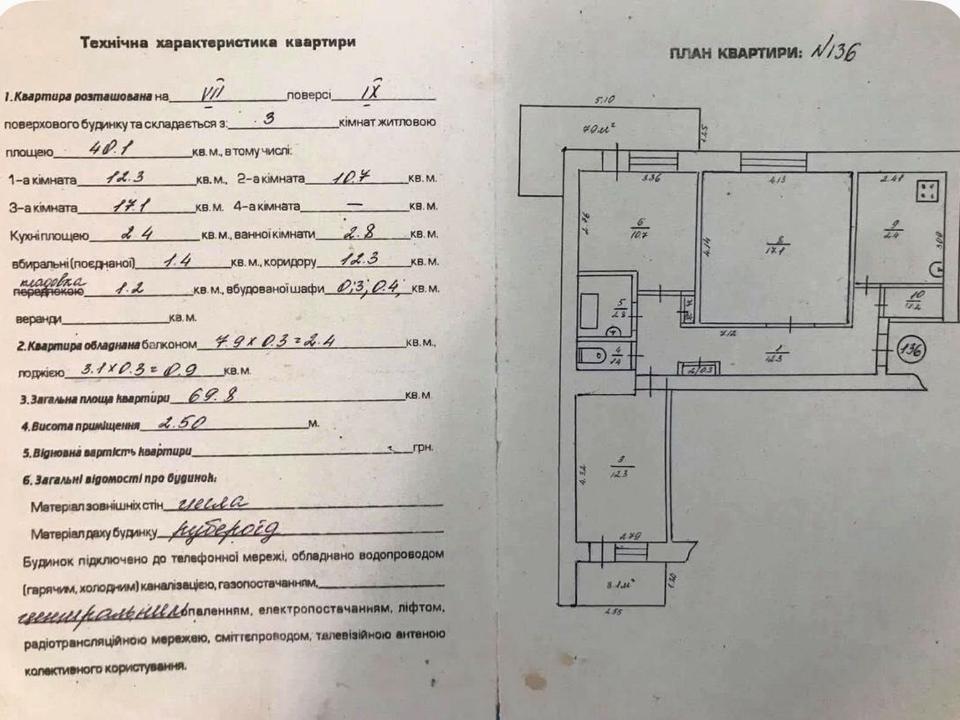 Технічна характеристика квартири
1. Квартира розташована на VII поверсі IX
поверхового будинку та складається з: 3 кімнат житловою
площею 40.1 кв. м., в тому числі:
1-а кімната 12.3 кв. м., 2-а кімната 10.7 кв. м.
3-а кімната 17.1 кв. м. 4-а кімната — кв. м.
Кухні площею 2.4 кв. м., ванної кімнати 2.8 кв. м.
вбиральні (поєднаної) 1.4 кв. м., коридору 12.3 кв. м.
кладовка
передпокою 1.2 кв. м., вбудованої шафи 0,3; 0.4, кв. м.
веранди кв. м.
2. Квартира обладнана балконом 7.9 x 0.3 = 2.4 кв. м.,
лоджією 3.1 x 0.3 = 0.9 кв. м.
3. Загальна площа квартири 69.8 кв. м.
4. Висота приміщення 2.50 м.
5. Відновна вартість квартири грн.
6. Загальні відомості про будинок:
Матеріал зовнішніх стін цегла
Матеріал даху будинку рубероїд
Будинок підключено до телефонної мережі, обладнано водопроводом
(гарячим, холодним) каналізацією, газопостачанням,
центральним опаленням, електропостачанням, ліфтом,
радіотрансляційною мережею, сміттєпроводом, телевізійною антеною
колективного користування.
ПЛАН КВАРТИРИ: N136
5.10
1.25
3.36
4.13
2.41
2.76
6
10.7
4.14
8
17.1
9
2.4
3.00
5
2.8
10
1.2
7.12
4
1.4
1
12.3
136
2 0.3
3
12.3
4.32
2.79
3.1 м²
1.20
2.55